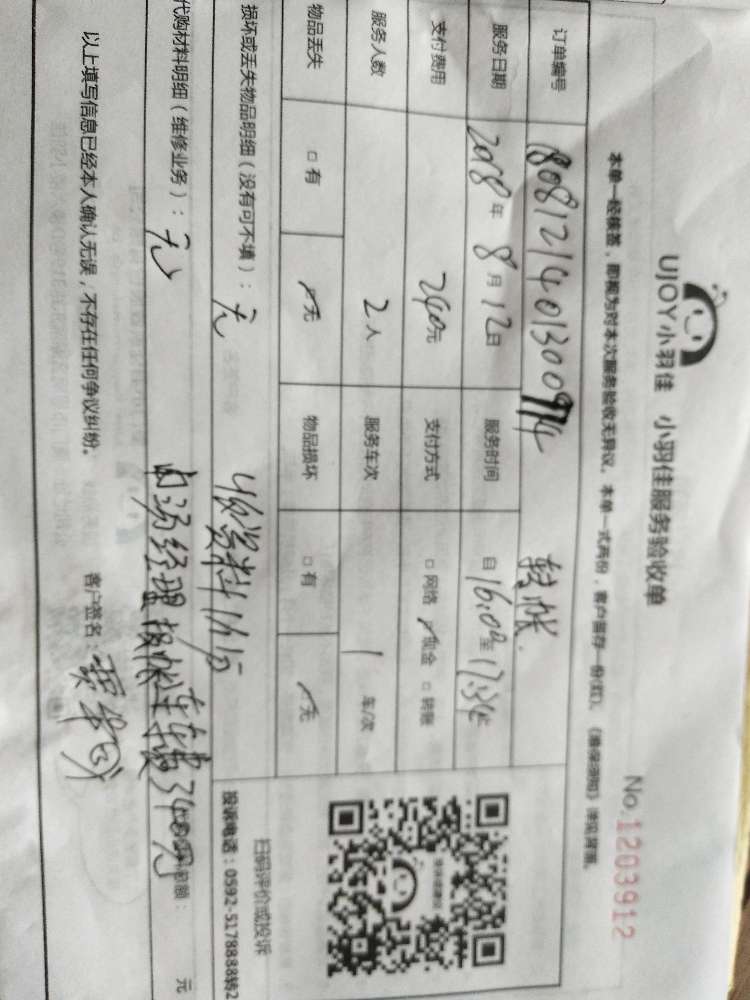 UJOY小羽佳 小羽佳服务验收单
No.1203912
本单一经核签，即视为对本次服务验收无异议。本单一式两份，客户留存一份(红)。《维保须知》详见背面。
订单编号 180812140130094 转帐.
服务日期 2018年8月12日 服务时间 自16:00至17:34
支付费用 240元 支付方式 □网络 ☑现金 □转账
服务人数 2人 服务车次 1车/次
物品丢失 □有 ☑无 物品损坏 □有 ☑无
损坏或丢失物品明细（没有可不填）：无 收资料1份
代购材料明细（维修业务）：无
额： 元
以上填写信息已经本人确认无误，不存在任何争议纠纷。 客户签名：
扫码评价或投诉
投诉电话：0592-5178888转2